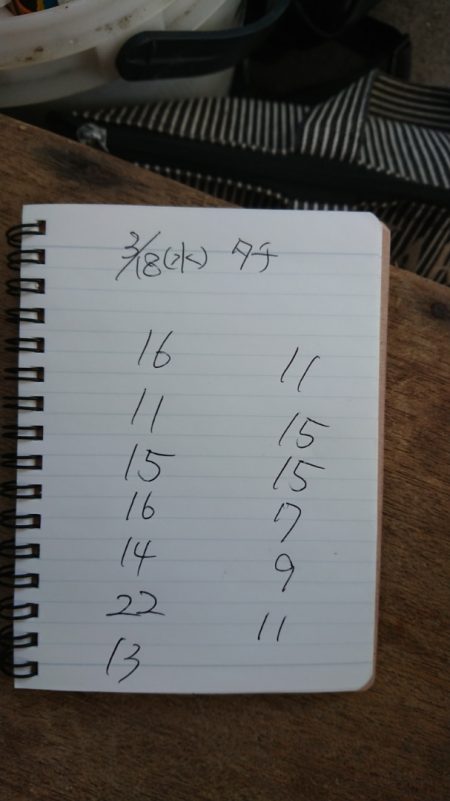 3/18(水) タチ
16
11
15
16
14
22
13
11
15
15
7
9
11